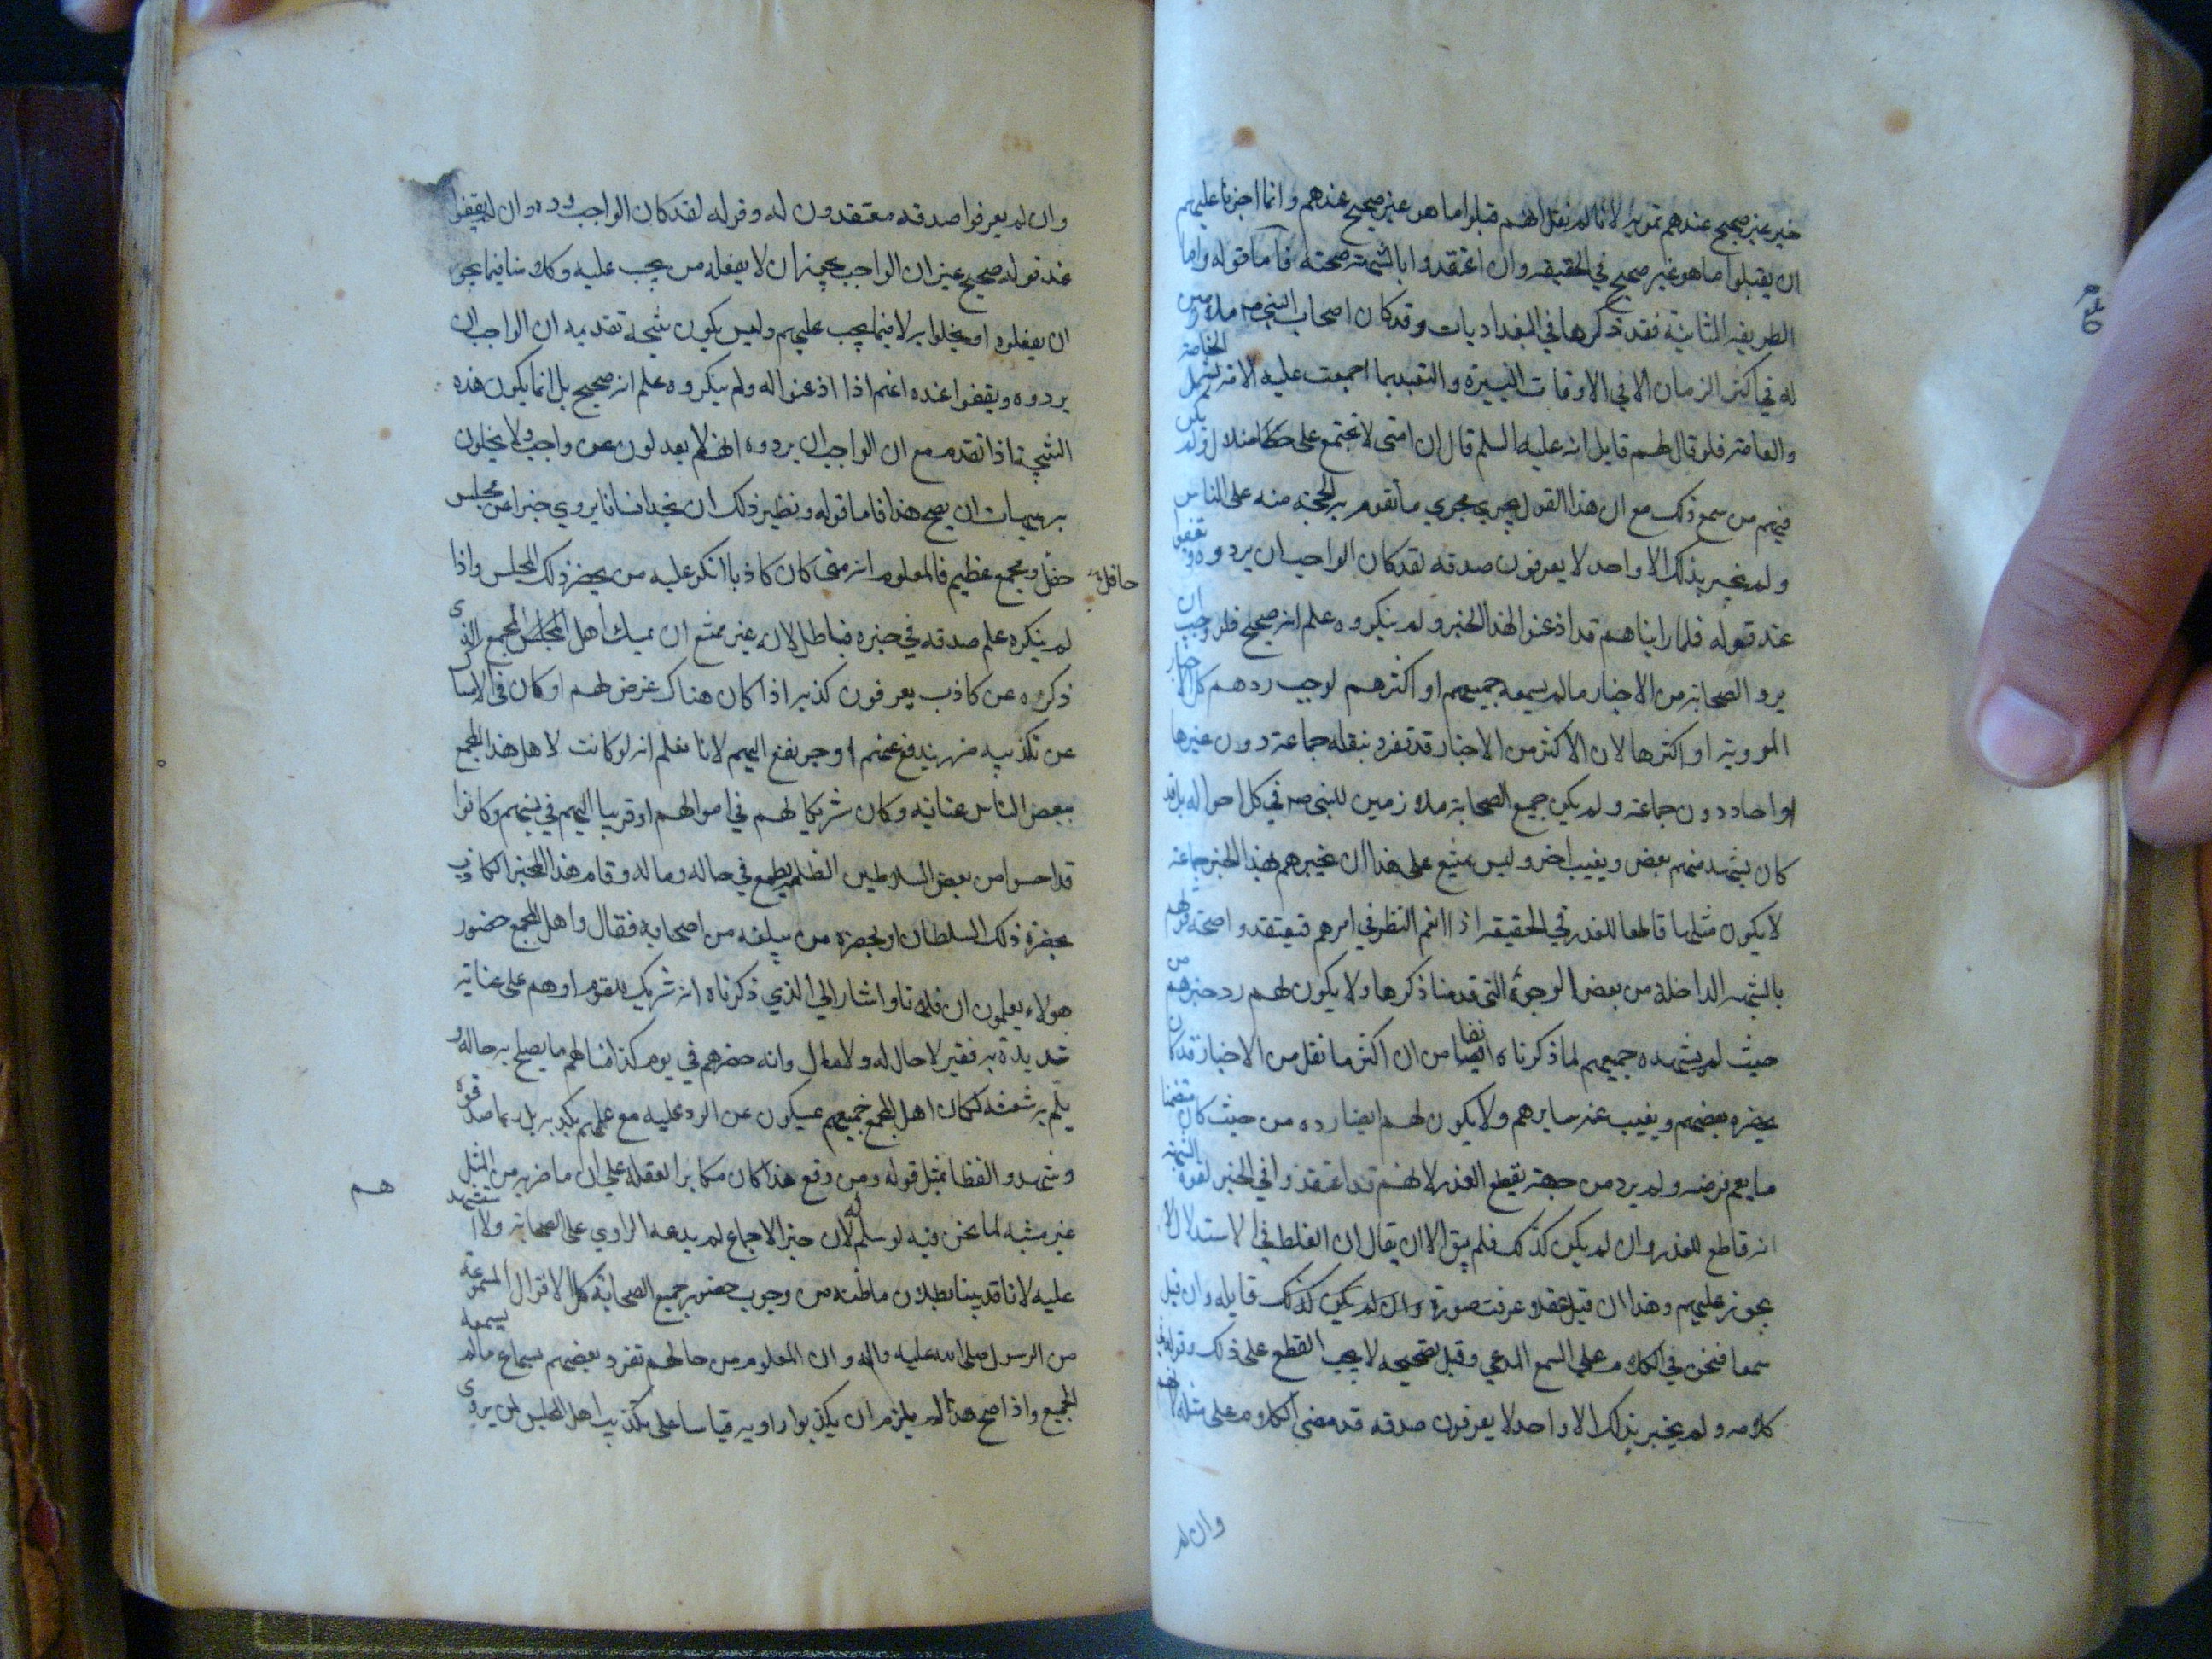 خبر غير صحيح عندهم تمويه لانا لم نقل انهم قبلوا ما هو غير صحيح عندهم وانما اجزنا عليهم
ان يقبلوا ما هو غير صحيح في الحقيقه وان اعتقدوا بالشبهة صحته فاما قوله واما
الطريقه الثانية فقد ذكرها في البغداديات وقد كان اصحاب النبي صه ملازمين
له في اكثر الزمان الا في الاوقات اليسيرة والتعبد بما اجمعت عليه الامة يشمل الخاصة
والعامة فلو قال لهم قايل انه عليه السلم قال ان امتى لا تجتمع على خطا مثلا ولم يكن
فيهم من سمع ذلك مع ان هذا القول يجري مجري ما تقوم به الحجة منه على الناس
ولم يخبر بذلك الا واحد لا يعرفون صدقه لقد كان الواجب ان يردوه ويقفوا
عند قوله فلما رايناهم قد اذعنوا لهذا الخبر ولم ينكروه علم انه صحيح فلو وجب ان
يرد الصحابة من الاخبار ما لم يسمعه جميعهم او اكثرهم لوجب ردهم كل الاخبار
المروية او اكثرها لان الاكثر من الاخبار قد تفرد بنقله جماعة دون غيرها
او احاد دون جماعة ولم يكن جميع الصحابة ملازمين للنبي صه في كل احواله بل قد
كان يشهد منهم بعض ويغيب اخر وليس يمتنع على هذا ان يخبرهم بهذا الخبر جماعة
لا يكون مثلها قاطعا للعذر في الحقيقه اذا انعم النظر في امرهم فيعتقدوا صحة قولهم
بالشبهه الداخلة من بعض الوجوه التي قدمنا ذكرها ولا يكون لهم رد خبرهم من
حيث لم يشهده جميعهم لما ذكرناه انفا من ان اكثر ما نقل من الاخبار قد كان
يحضره بعضهم ويغيب عنه سايرهم ولا يكون لهم ايضا رده من حيث كان متضمنا
ما يعم فرضه ولم يرد من جهة يقطع العذر لانهم قد اعتقدوا في الخبر لقوة الشبهة
انه قاطع للعذر وان لم يكن كذلك فلم يبق الا ان يقال ان الغلط في الاستدلال لا
يجوز عليهم وهذا ان قيل عقلا عرفت صورة وان لم يكن كذلك قايله وان قيل
سمعا فنحن في الكلام على السمع المدعي وقبل تصحيحه لا يجب القطع على ذلك وقوله في
كلامه ولم يخبر بذلك الا واحد لا يعرفون صدقه قد مضى الكلام على مثله لانهم
وان لم
وان لم يعرفوا صدقه معتقدون له وقوله لقد كان الواجب رده وان يقفوا
عند قوله صحيح غير ان الواجب يجوز ان لا يفعله من يجب عليه وكلامنا فيما يجوز
ان يفعلوه او يخلوا به لا فيما يجب عليهم وليس يكون نتيجة تقديمه ان الواجب ان
يردوه ويقفوا عنده اغنم اذا اذعنوا له ولم ينكروه علم انه صحيح بل انما يكون هذه
النتيجة اذا تقدم مع ان الواجب ان يردوه انهم لا يعدلون عن واجب ولا يخلون
به هيهات ان يصح هذا فاما قوله ونظير ذلك ان نجد انسانا يروي خبرا عن مجلس
حافل
حفل ومجمع عظيم فالمعلوم انه متى كان كاذبا انكر عليه من يحضر ذلك المجلس واذا
لم ينكره علم صدقه في خبره فباطل لانه غير ممتنع ان يمسك اهل المجلس المجمع الذي
ذكره عن كاذب يعرفون كذبه اذا كان هناك غرض لهم او كان في الامساك
عن تكذيبه ضرر يندفع عنهم او جر نفع اليهم لانا نعلم انه لو كانت لاهل هذا المجمع
ببعض الناس عناية وكان شريكا لهم في اموالهم او قريبا اليهم في نسبهم وكانوا
قد احسوا من بعض السلاطين الظلمة بطمع في حاله وماله وقام هذا المخبر الكاذب
بحضرة ذلك السلطان او بحضرة من يبلغه من اصحابه فقال واهل المجمع حضور
هولاء يعلمون ان فلانا واشار الى الذي ذكرناه انه شريك للقوم او هم على عناية
شديدة به فقير لا حال له ولا مال وانه حضرهم في يوم كذا فسالهم ما يصلح به حاله و
يلم به شعثه لكان اهل المجمع جميعهم يمسكون عن الرد عليه مع علمهم بكذبه بل ربما صدقوه
وشهدوا لفظا بمثل قوله ومن دفع هذا كان مكابرا لعقله على ان ما ضربه من المثل
هم
غير مشبه لما نحن فيه لو سلم له لان خبر الاجماع لم يدعه الراوي على الصحابة ولا استشهد
عليه لانا قد بينا بطلان ما ظنه من وجوب حضور جميع الصحابة كل الاقوال المسموعة
من الرسول صلى الله عليه واله وان المعلوم من حالهم تفرد بعضهم بسماع ما لم يسمعه
الجميع واذا صح هذا لم يلزم ان يكذبوا راويه قياسا على تكذيب اهل المجلس لمن يروي